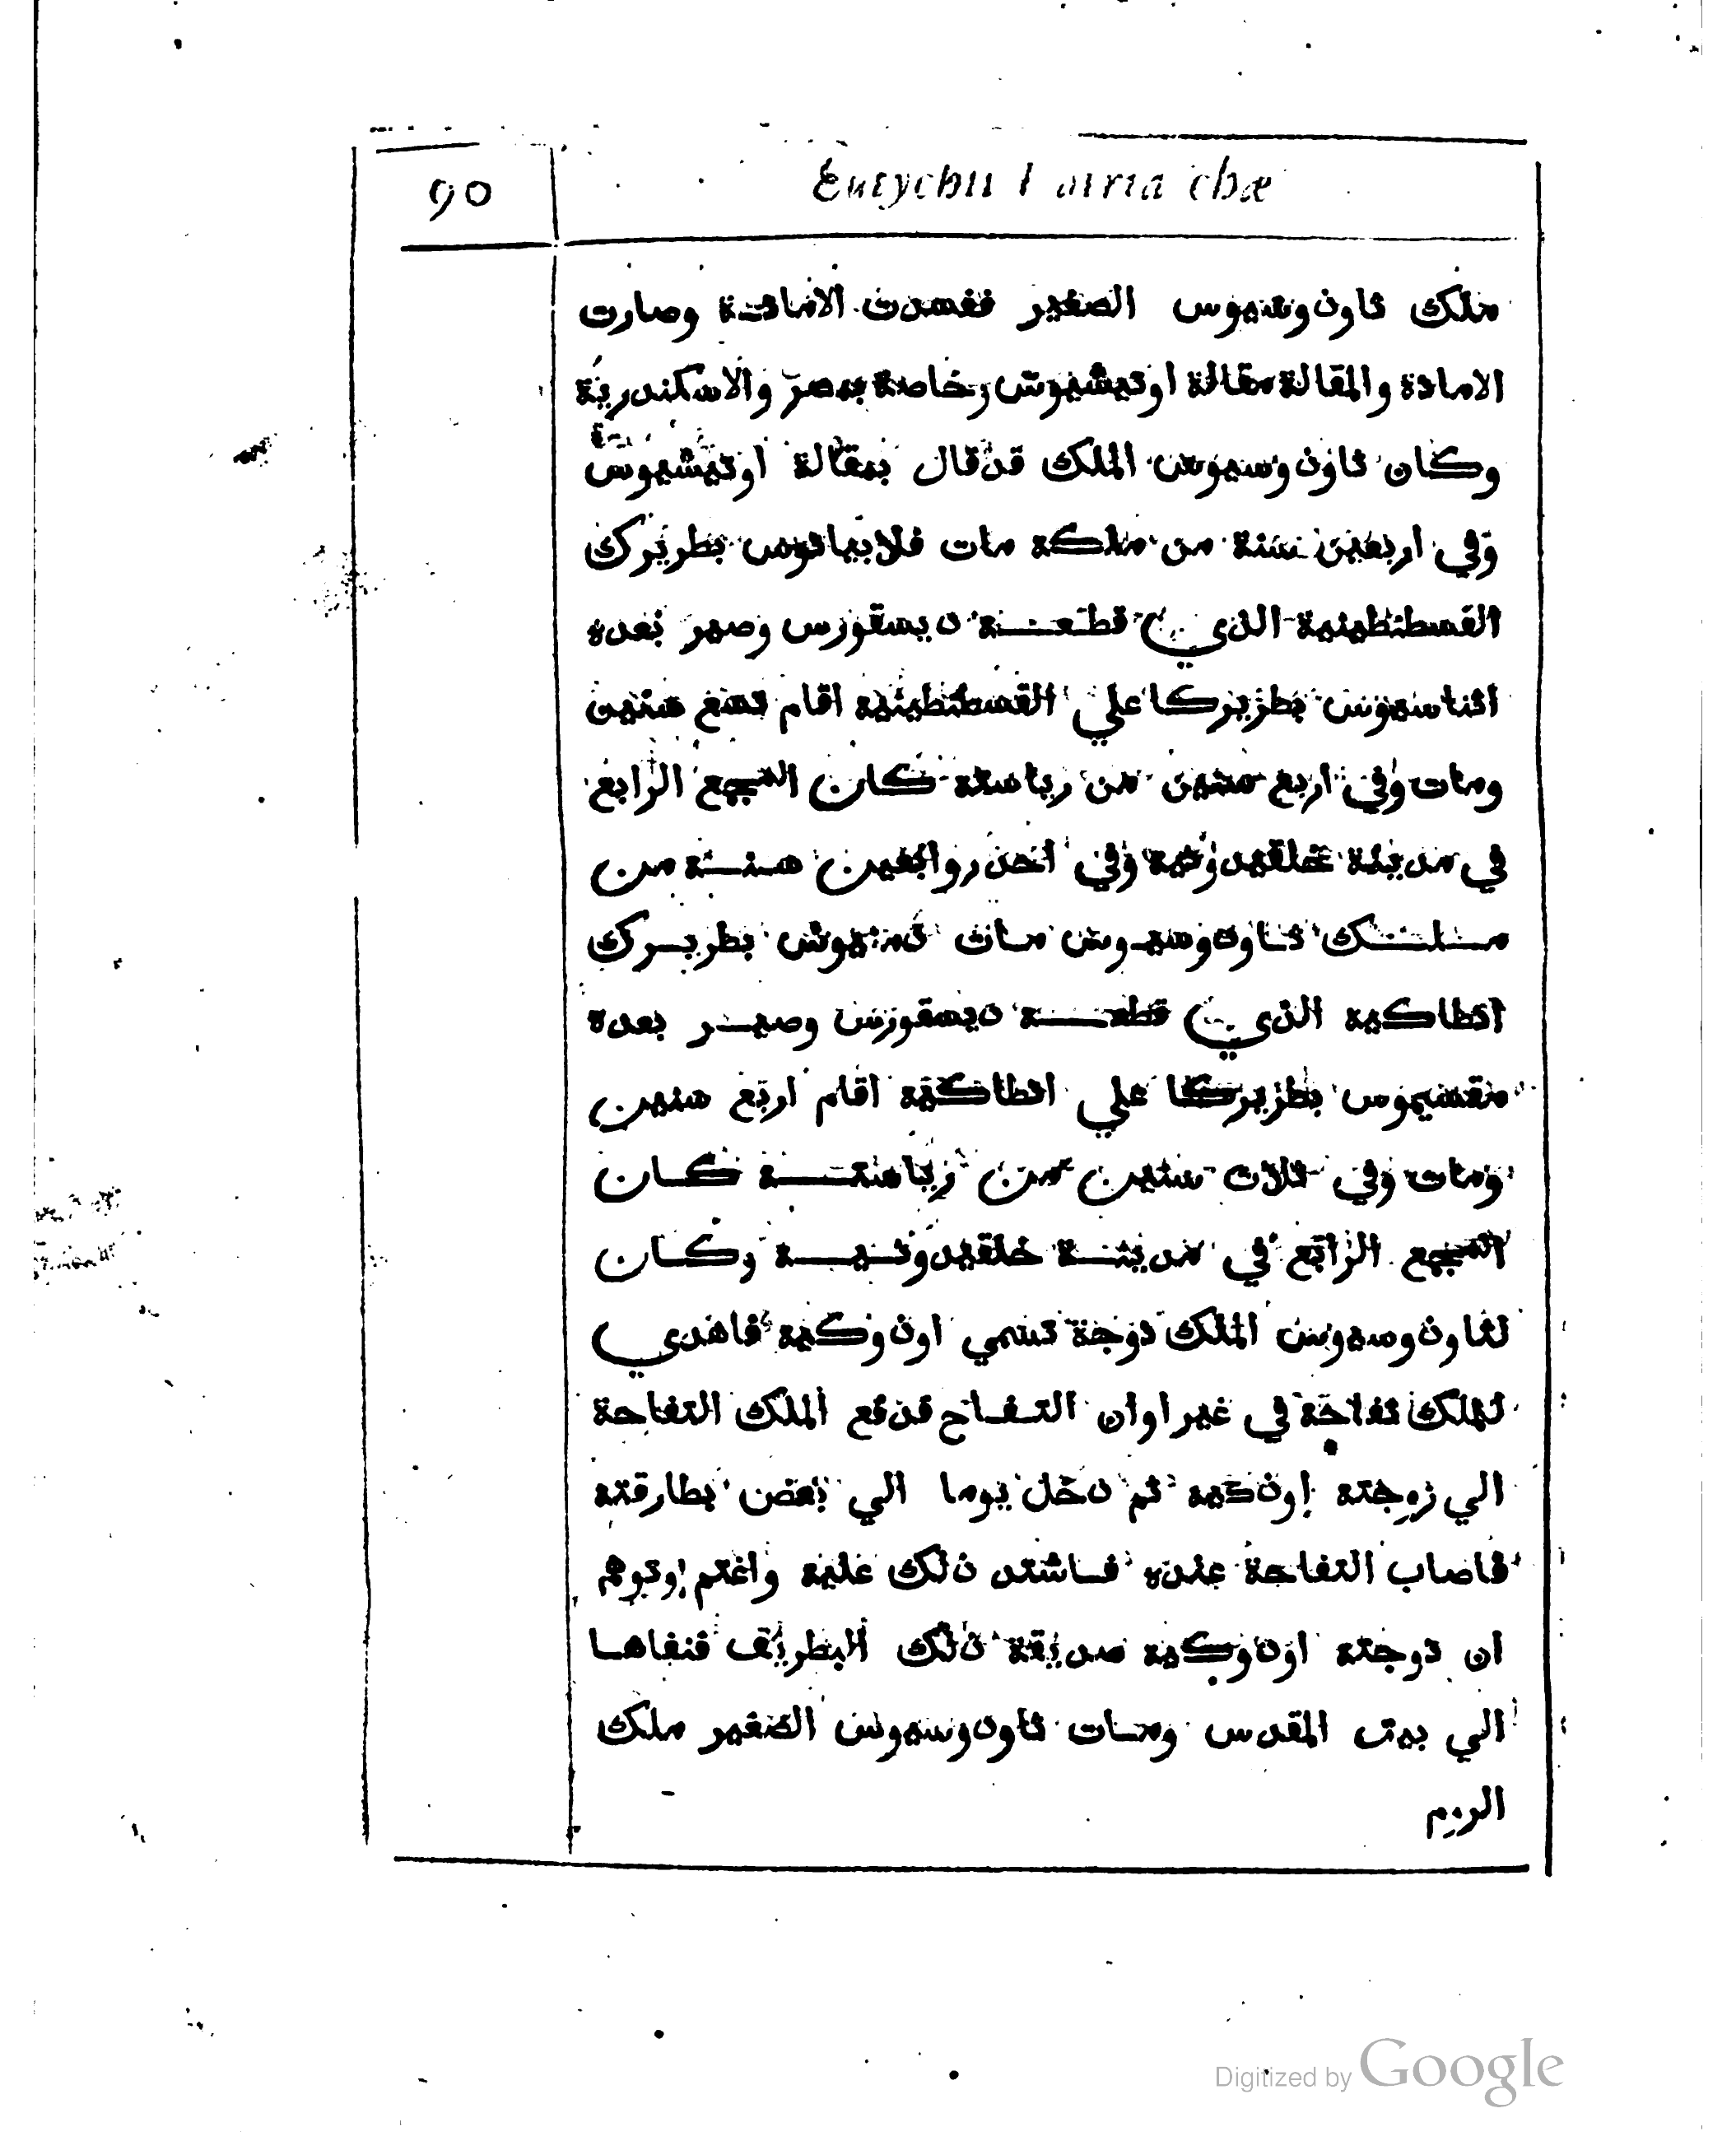 90
Eutychii Patriarchæ
ملك ثاودوسيوس الصغير ففسدت الامانة وصارت
الامانة والمقالة مقالة اوتيشيوس وخاصة بمصر والاسكندرية
وكان ثاودوسيوس الملك قد قال بمقالة اوتيشيوس
وفي اربعين سنة من ملكه مات فلابيانوس بطريرك
القسطنطينية الذي قطعه ديسقورس وصير بعده
اثناسيوس بطريركا علي القسطنطينية اقام تسع سنين
ومات وفي اربع سنين من رياسته كان المجمع الرابع
في مدينة خلقيدونية وفي احد واربعين سنة من
ملك ثاودوسيوس مات دمنيوس بطريرك
انطاكية الذي قطعه ديسقورس وصير بعده
مقسيموس بطريركا علي انطاكية اقام اربع سنين
ومات وفي ثلاث سنين من رياسته كان
المجمع الرابع في مدينة خلقيدونية وكان
لثاودوسيوس الملك زوجة تسمي اودوكية فاهدي
للملك تفاحة في غير اوان التفاح فدفع الملك التفاحة
الي زوجته اودكيه ثم دخل يوما الي بعض بطارقته
فاصاب التفاحة عنده فاشتد ذلك عليه واغتم وتوهم
ان زوجته اودوكية صديقة ذلك البطريق فنفاها
الي بيت المقدس ومات ثاودوسيوس الصغير ملك
الروم
Digitized by Google